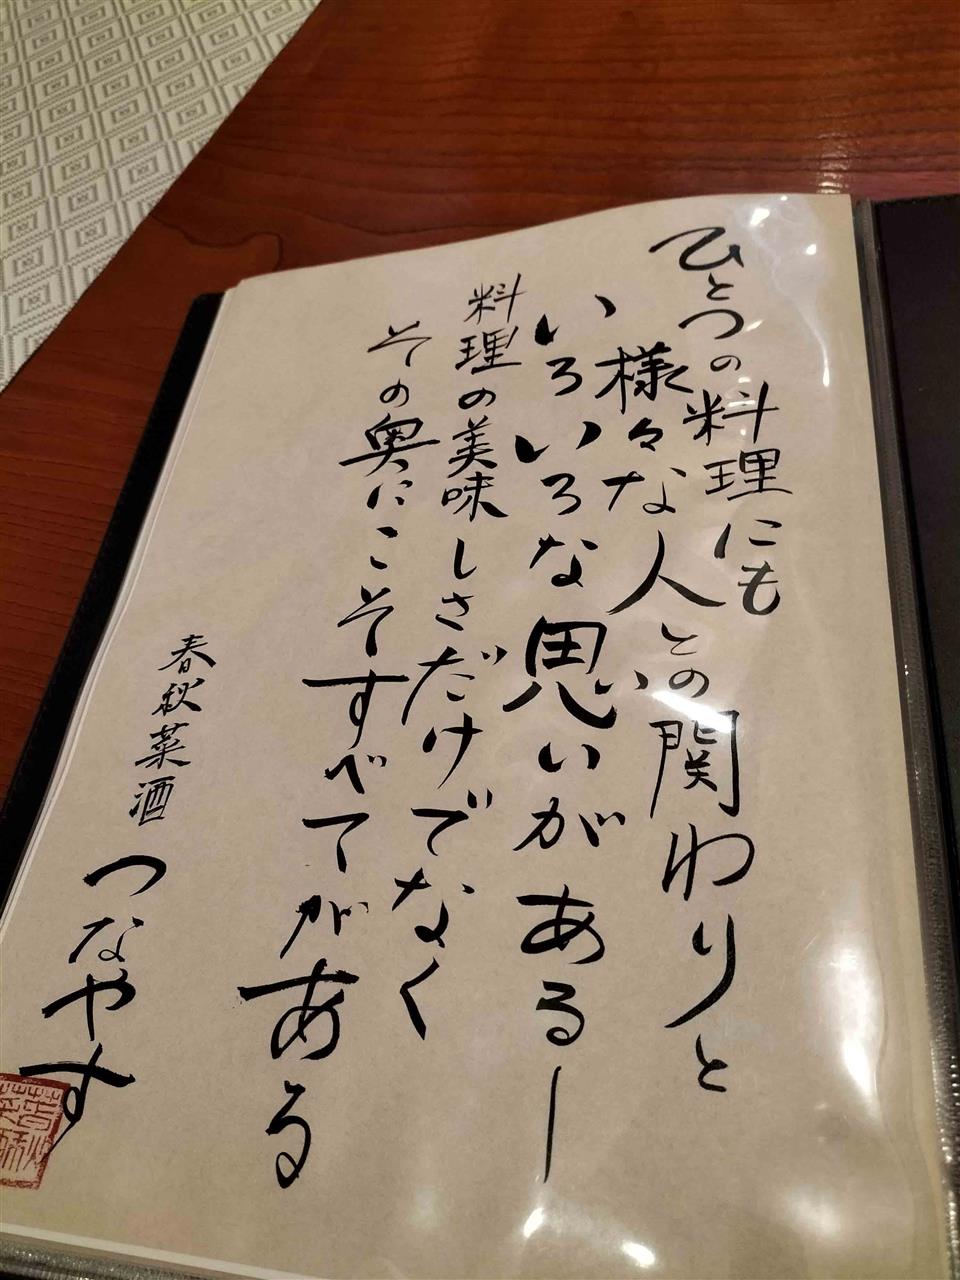 ひとつの料理にも
様々な人との関わりと
いろいろな思いがある―
料理の美味しさだけでなく
その奥にこそすべてがある
春秋菜酒
つなやす